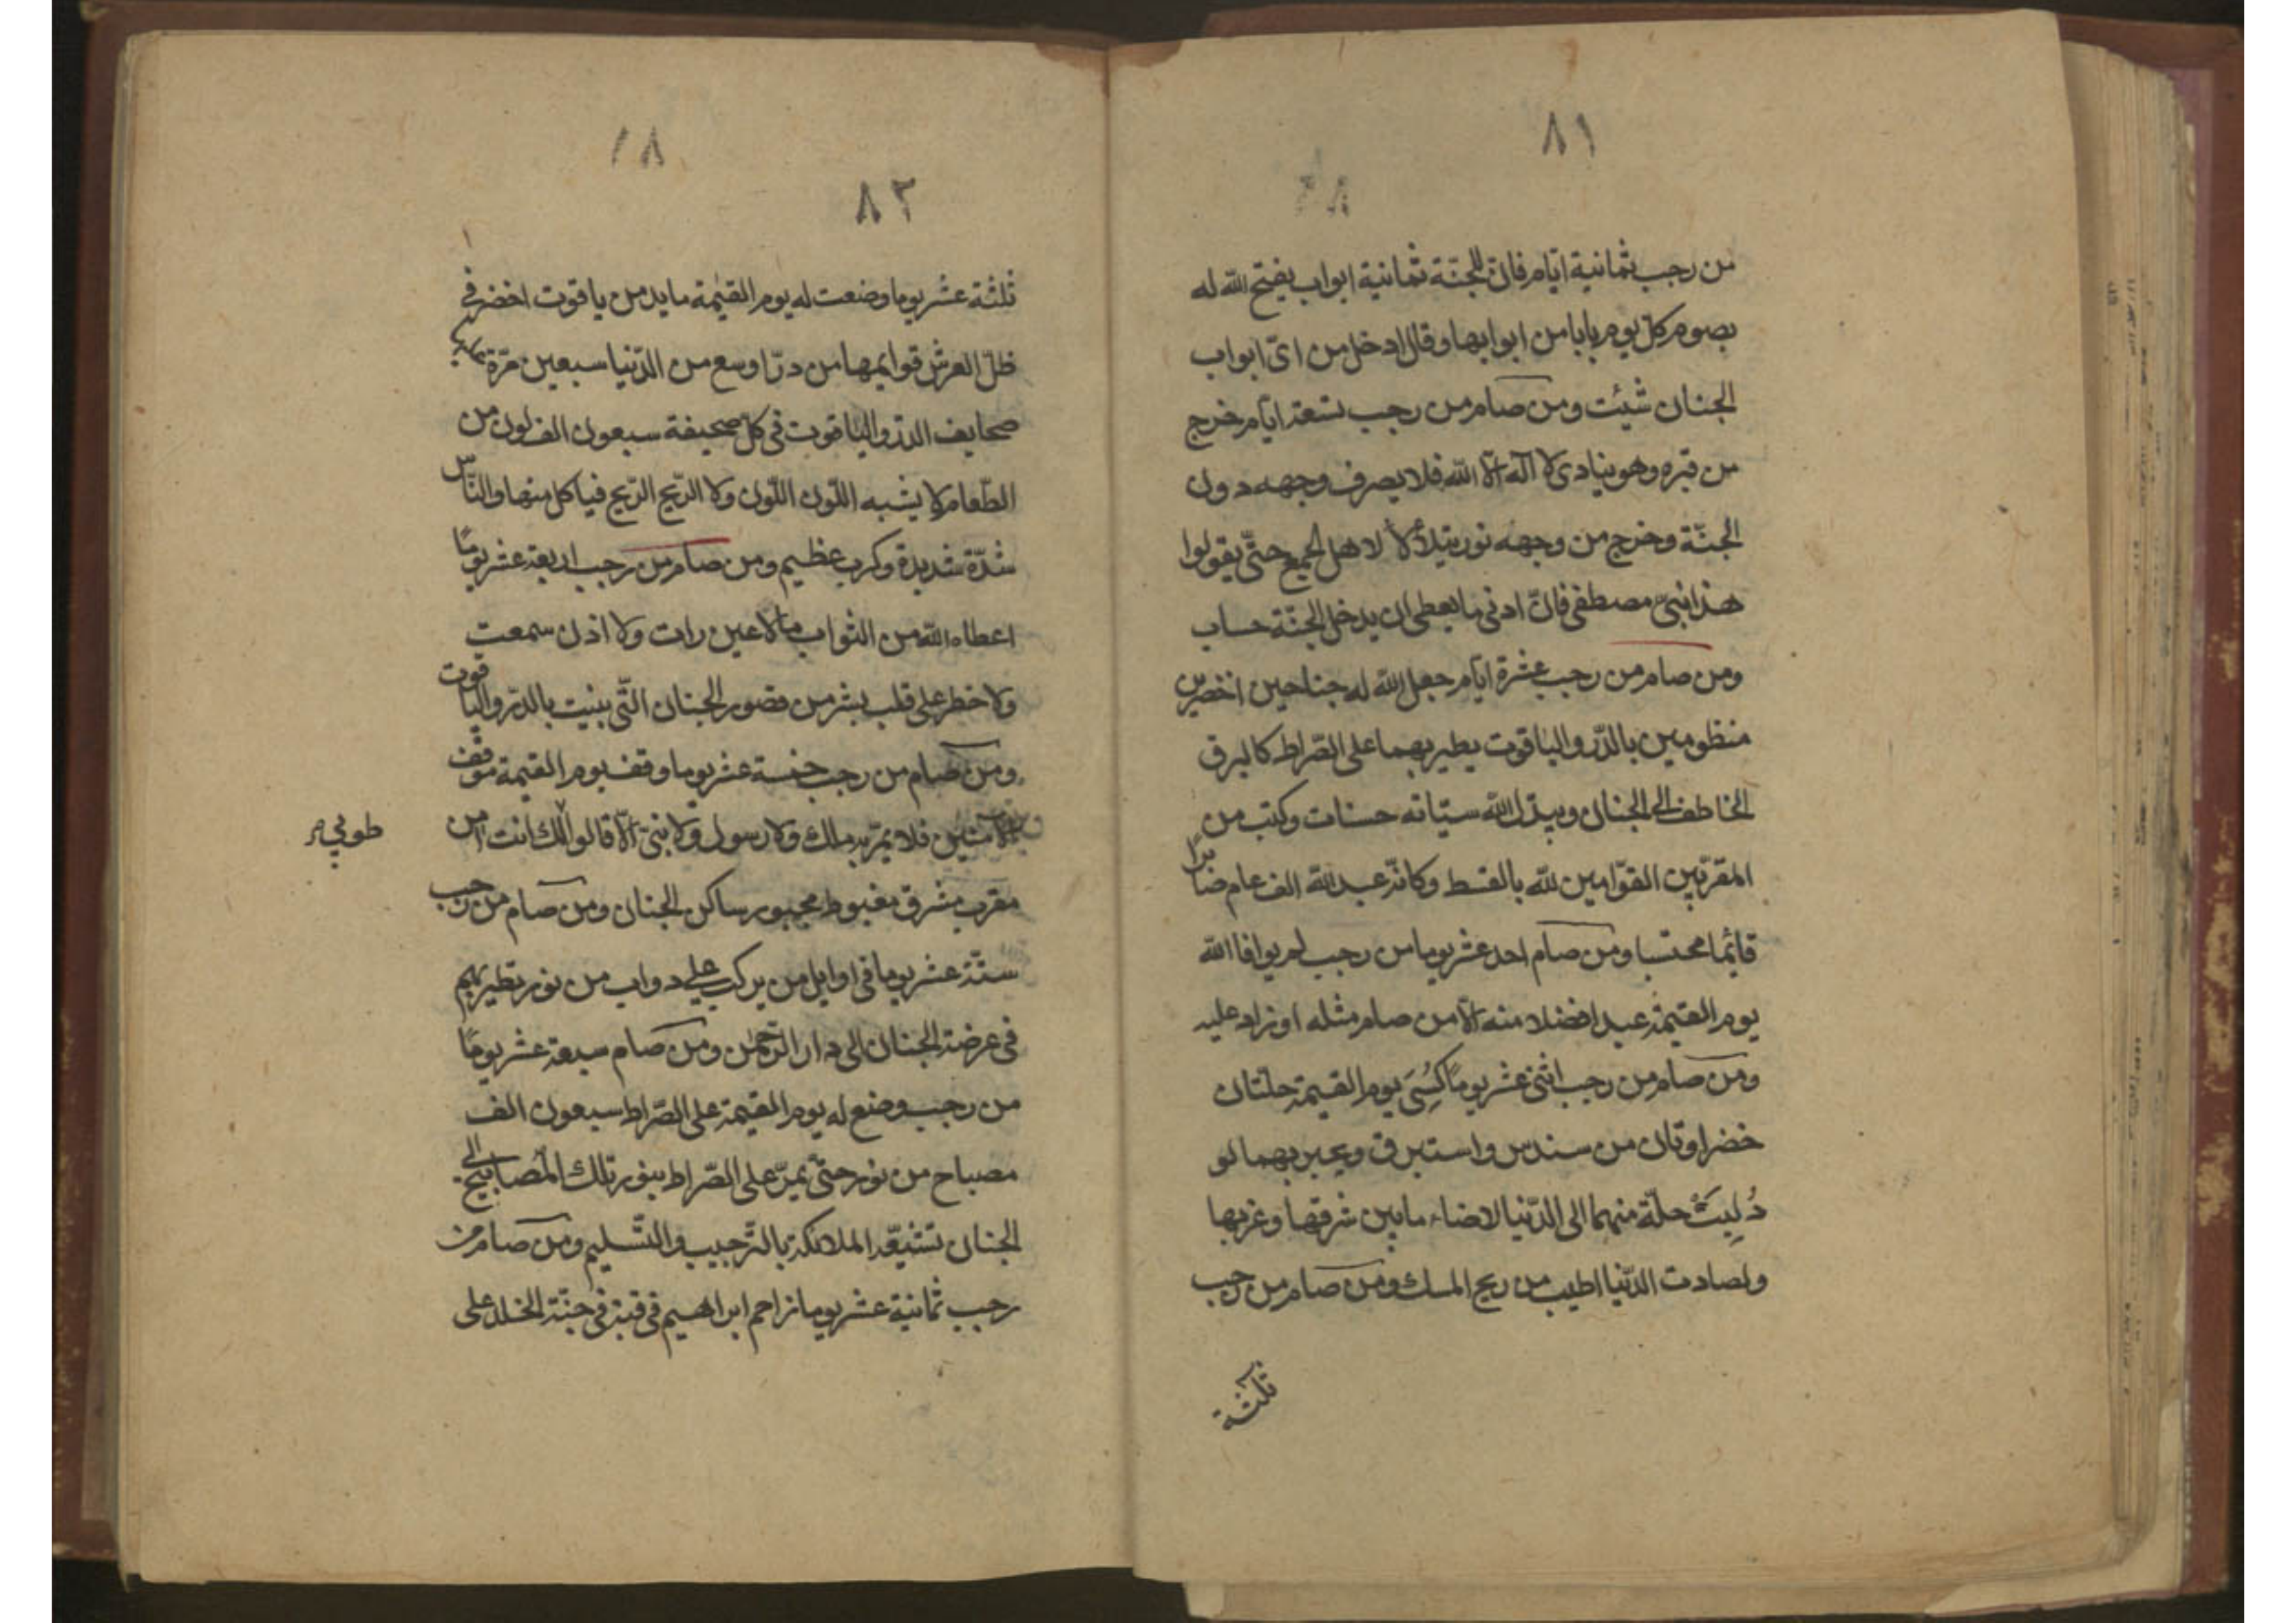 ٨١
من رجب ثمانية ايّام فانّ للجنّة ثمانية ابواب يفتح الله له
بصوم كلّ يوم بابا من ابوابها وقال ادخل من اىّ ابواب
الجنان شيئت ومن صام من رجب تسعة ايّام خرج
من قبره وهو ينادى لا آله الّا الله فلا يصرف وجهه دون
الجنّة وخرج من وجهه نور يتلألأ لاهل الجمع حتّى يقولوا
هذا نبىّ مصطفى فانّ ادنى ما يعطى ان يدخل الجنّة حساب
ومن صام من رجب عشرة ايّام جعل الله له جناحين اخضرين
منظومين بالدّر والياقوت يطير بهما على الصّراط كالبرق
الخاطف الى الجنان ويبدّل الله سيّاته حسنات وكتب من
المقرّبين القوّامين لله بالقسط وكانّه عبد الله الف عام صابرًا
قائما محتسبا ومن صام احد عشر يوما من رجب لم يوافا الله
يوم القيمة عبد افضلا منه الّا من صام مثله او زاد عليه
ومن صام من رجب اثنى عشر يومًا كُسِىَ يوم القيمة حلّتان
خضراوتان من سندس واستبرق ويحبر بهما لو
دُلِيَتْ حلّة منهما الى الدّنيا لاضاء ما بين شرقها وغربها
ولصادت الدّنيا اطيب من ريح المسك ومن صام من رجب
ثلثة
١٨
٨٢
ثلثة عشر يوما وضعت له يوم القيمة مايد من ياقوت اخضر فى
ظلّ العرش قوايمها من درّ اوسع من الدّنيا سبعين مرّة
صحايف الدّر والياقوت فى كلّ صحيفة سبعون الف لون من
الطّعام لا يشبه اللّون اللّون ولا الرّيح الرّيح فياكل منها والنّاس
شدّة شديدة وكرب عظيم ومن صام من رجب اربعة عشر يومًا
اعطاه الله من الثواب ما لا عين رات ولا اذن سمعت
ولا خطر على قلب بشر من قصور الجنان الّتى بنيت بالدّر والياقوت
ومن صام من رجب خمسة عشر يوما وقف يوم القيمة موقف
الآمنين فلا يمرّ به ملك ولا رسول ولا نبىّ الّا قالوا لك انت امن
طوبى م
مقرب مشرق مغبوط محبور ساكن الجنان ومن صام من رجب
ستّة عشر يوما فى اوايل من يركب على دواب من نور تطير بهم
فى عرضة الجنان الى دار الرّحمن ومن صام سبعة عشر يومًا
من رجب وضع له يوم القيمة على الصّراط سبعون الف
مصباح من نور حتّى يمرّ على الصّراط بنور تلك المصابيح الى
الجنان تشيّعه الملائكة بالتّرجيب والتّسليم ومن صام من
رجب ثمانية عشر يوما زاحم ابراهيم فى قبة فى جنّة الخلد على